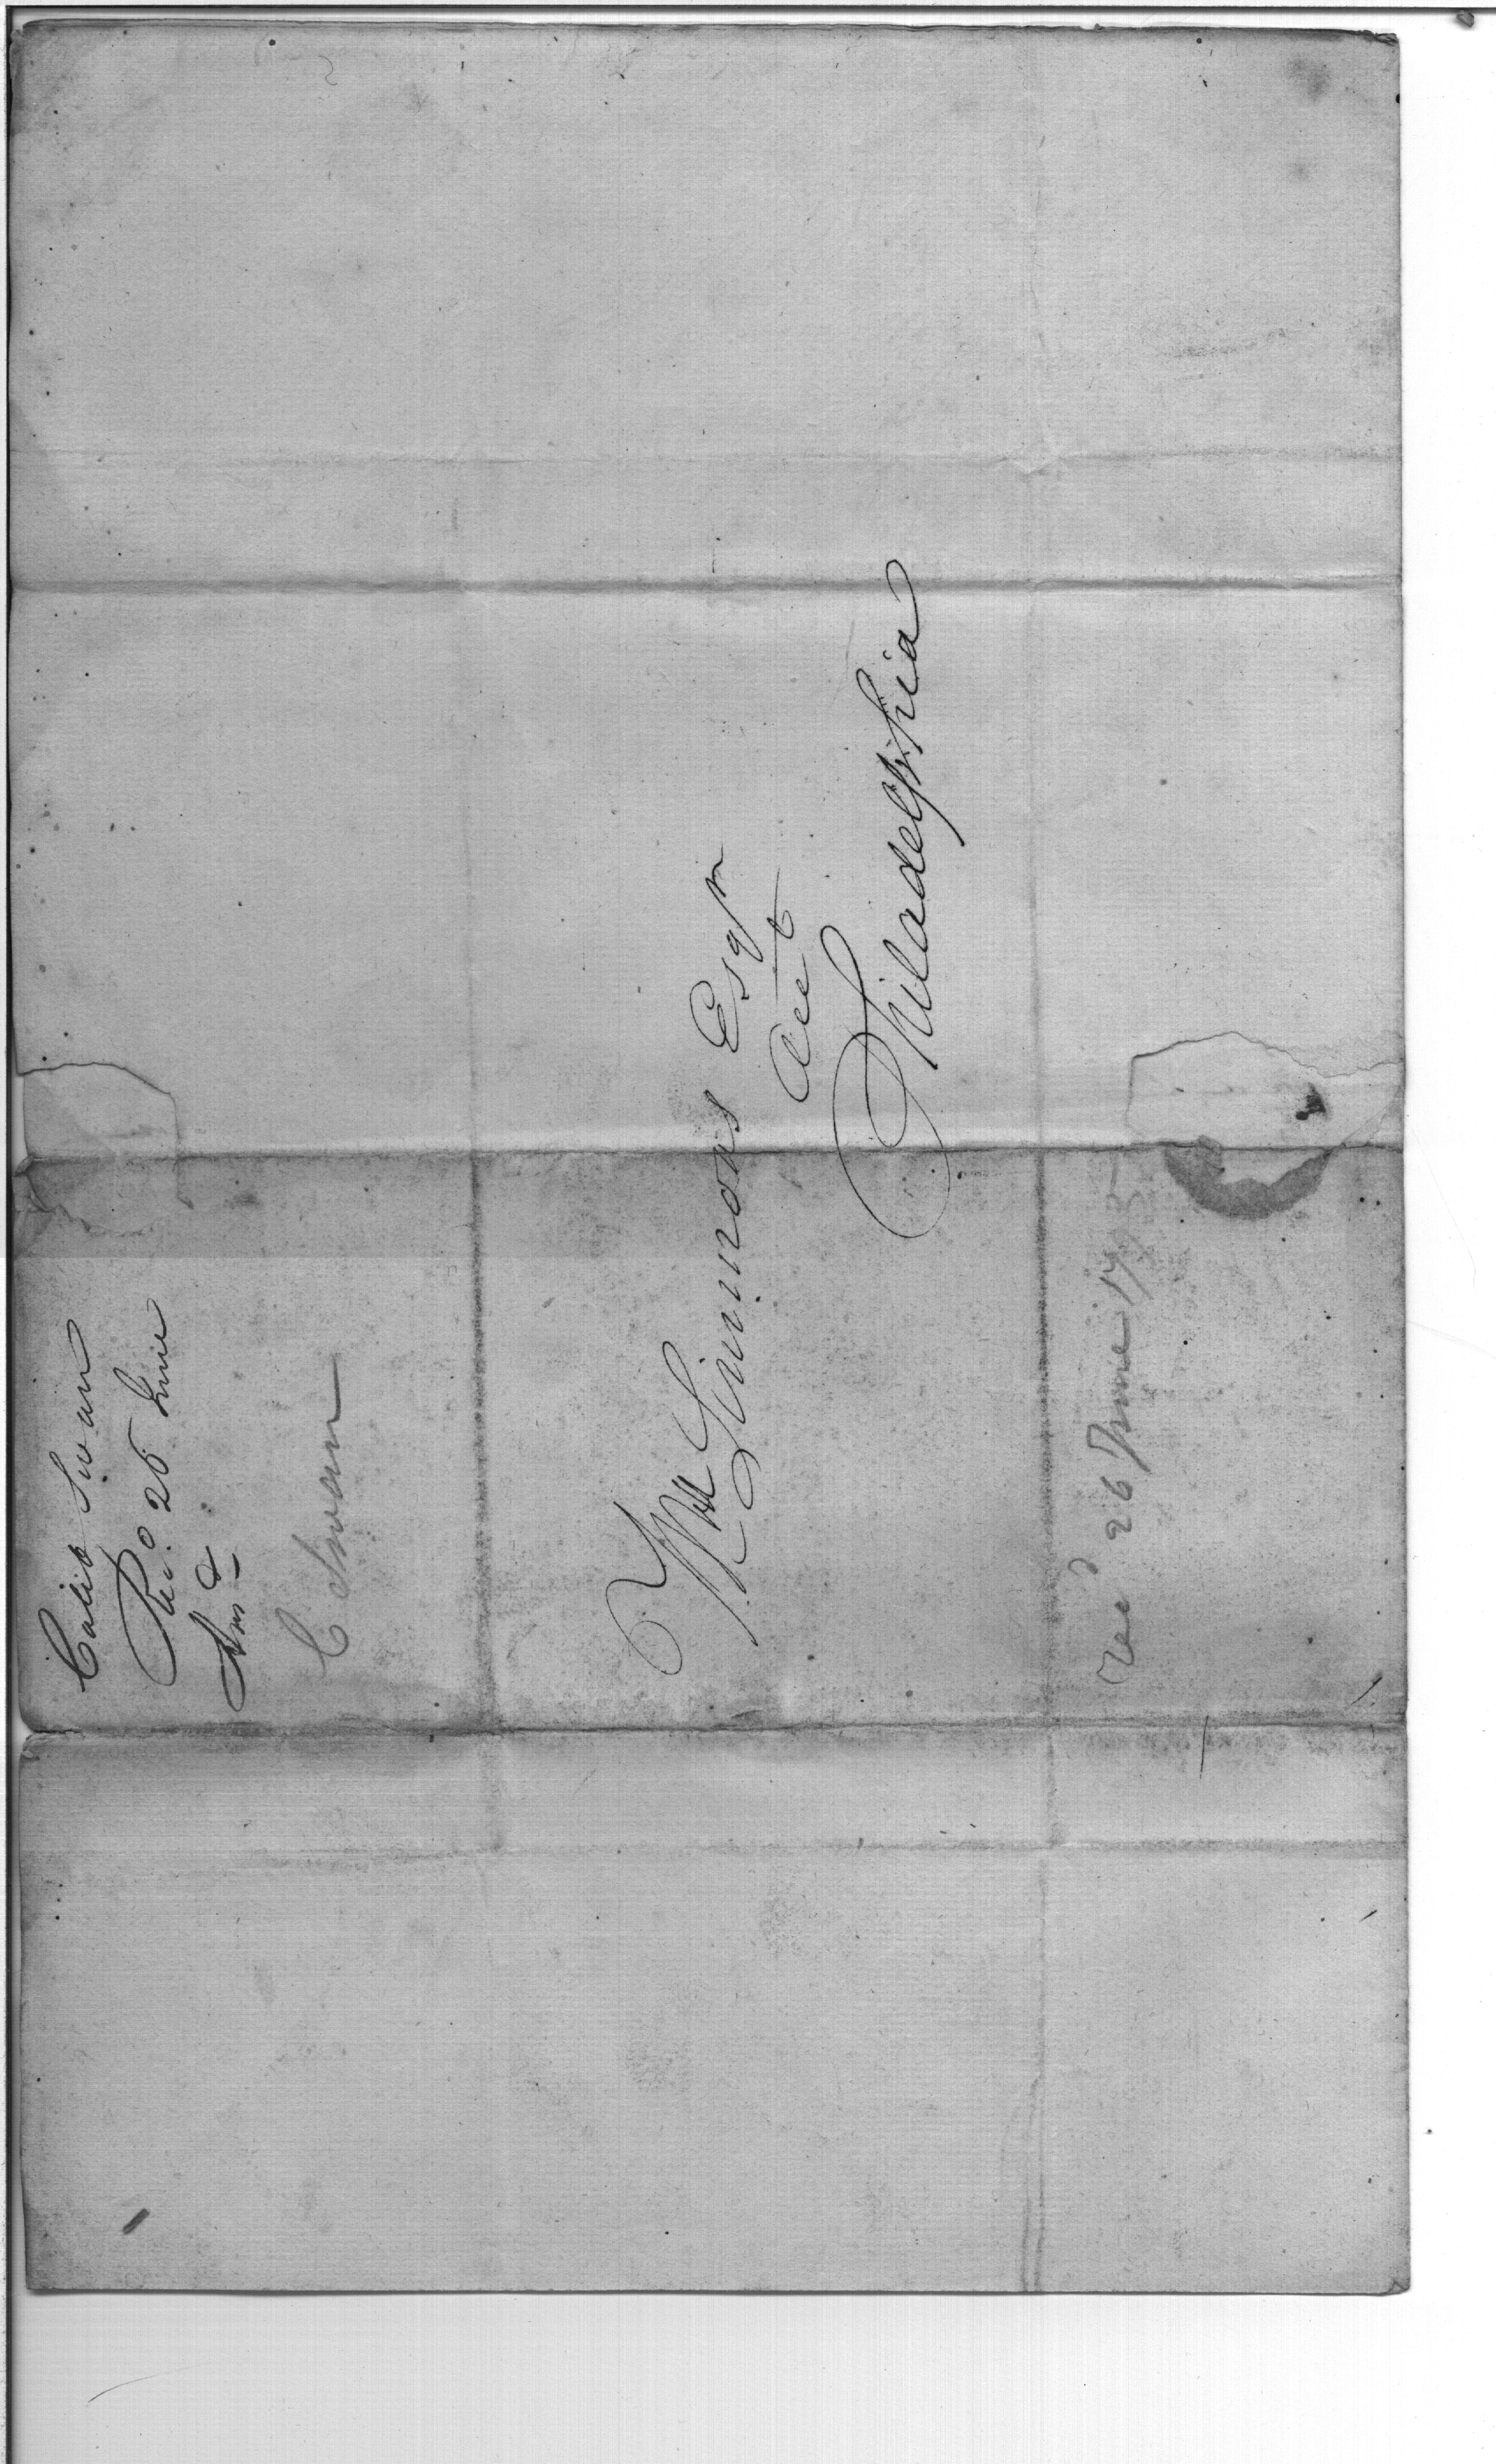 Caleb Swan
Recd. 26 June
Ansd
C Swan
Wm Simmons Esqr
Acct
Philadelphia
Recd 26 June 1795